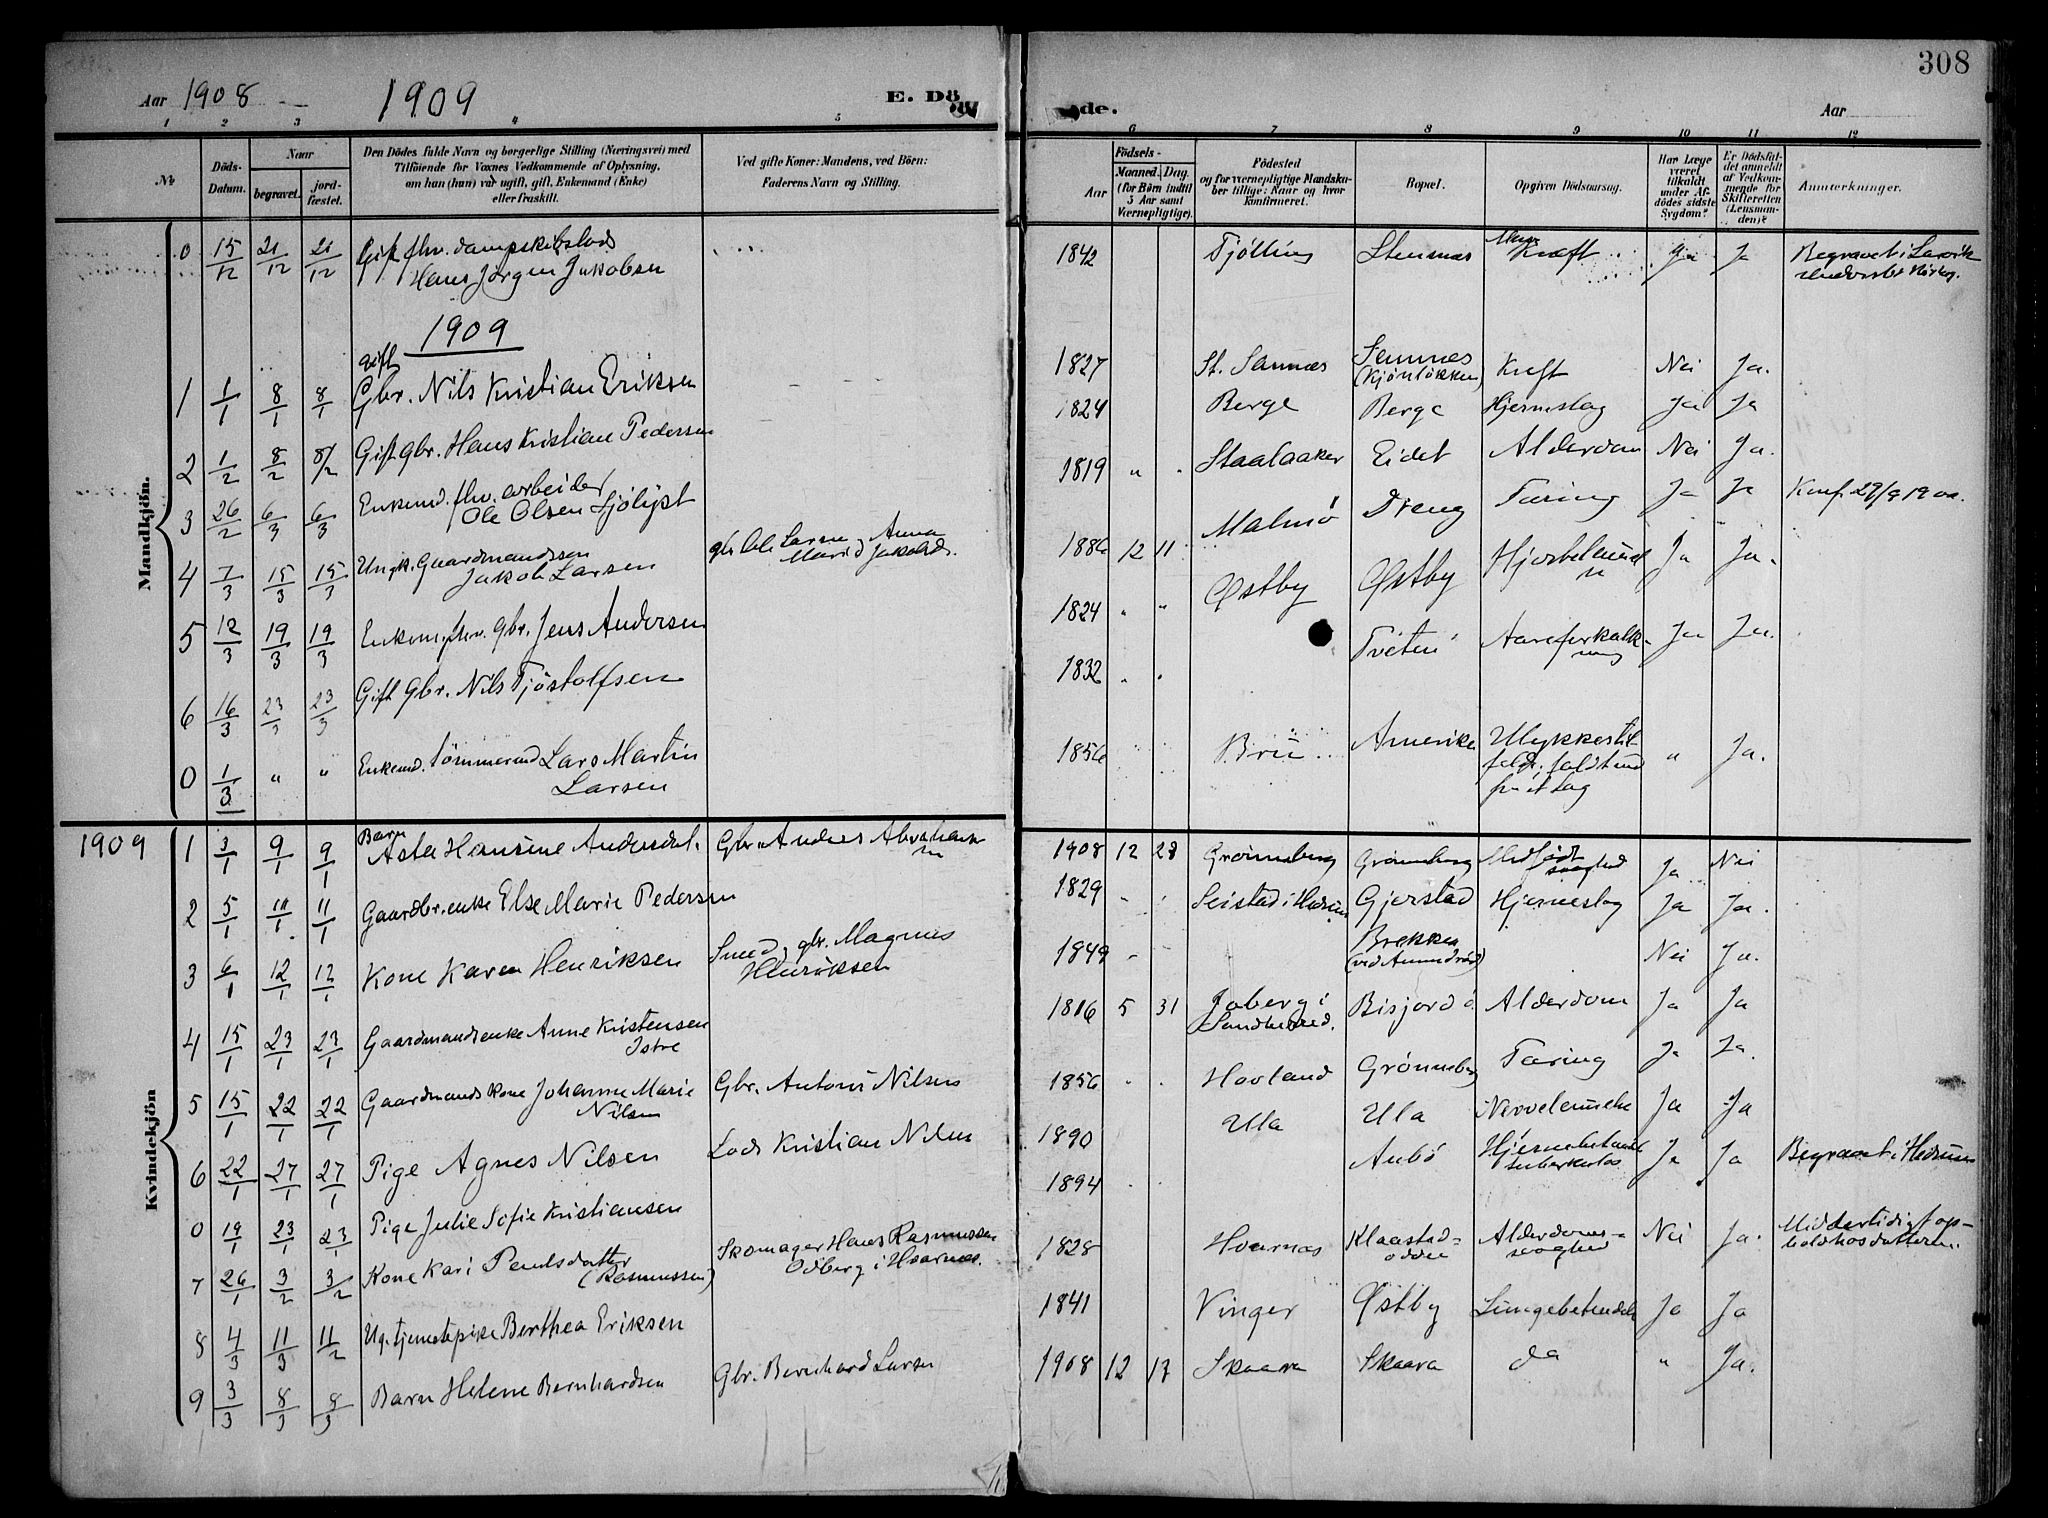 308
Aar 1908 — 1909 E. Dö
de. Aar
1 2 3 4 5 6 7 8 9 10 11 12
No
Döds-Datum.
Naar
begravet.
jord-fæstet.
Den Dödes fulde Navn og borgerlige Stilling (Næringsvei) med
Tilföiende för Voxnes Vedkommende af Oplysning,
om han (hun) var ugift, gift, Enkemand (Enke)
eller fraskilt.
Ved gifte Koner: Mandens, ved Börn:
Faderens Navn og Stilling.
Födsels-
Aar
Maaned. Dag.
(for Börn indtil
5 Aar samt
Værnepligtige).
Födested
og for værnepligtige Mandska-
ber tillige: Naar og hvor
Konfirmeret.
Bopæl.
Opgiven Dödsaarsag.
Har Læge
været
tilkaldt
under Af-
dödes sidste
Sygdom?
Er Dödsfal-
det anmeldt
af Vedkom-
mende for
Skifteretten
(Lensman-
den)?
Anmærkninger.
Mandkjön.
0 15/12 21/12 21/12 Gift fhv. dampskibslods
Hans Jörgen Jakobsen 1842 Tjölling Stensnæs Kræft Ja Ja Begravet i Larvik
1909
1 1/1 8/1 8/1 gift
Gbr. Nils Kristian Eriksen 1827 St. Sannæs Sannæs
(Kjönlökken) Kræft Nei Ja.
2 1/2 8/2 8/2 Gift Gbr. Hans Kristian Pedersen 1824 Berge Berge Hjerneslag Ja Ja
3 26/2 6/3 6/3 Enkemd. fhv. arbeider
Ole Olsen Sjölyst 1819 " . Staalaaker Eidet Alderdom Nei Ja.
4 7/3 15/3 15/3 Ungk. Gaardmandssøn
Jakob Larsen gbr Ole Larsen, Anna
Marie Jakobsd. 1886 12 11 Malmö Dreng Tæring Ja Ja Konf. 29/9 1900.
5 12/3 19/3 19/3 Enkem. fhv. Gbr. Jens Andersen 1824 " " Østby Østby Ja Ja.
6 16/3 23/3 23/3 Gift Gbr. Nils Tjöstolfsen 1832 . . Tveten Aareforkalk-
ning Ja Ja.
0 1/3 " " Enkemd. tömmermd Lars Martin
Larsen 1856 Amerika Ulykkestil-
" Ja.
1909
Kvindekjön
1 3/1 9/1 9/1 Barn
Asta Hansine Andersdat. Gbr. Anders Abraham-
sen 1908 12 28 Grønneberg Grønneberg Medfödt
svaghed Ja Nei
2 5/1 11/1 11/1 Gaardbr.enke Else Marie Pedersen 1829 Seistad i Hedrum Gjerstad Hjerneslag Ja Ja.
3 6/1 12/1 12/1 Kone Karen Henriksen Smed, gbr. Magnus
Henriksen 1849 Brekke
(ved Amundröd) Nei Ja.
4 15/1 23/1 23/1 Gaardmandsenke Anne Kristensen
Istre 1816 5 31 Joberg i
Sandherred. Bisjord Alderdom Ja Ja
5 15/1 22/1 22/1 Gaardmandskone Johanne Marie
Nilsen Gbr. Anton Nilsen 1856 Hovland Grønneberg Tæring Ja Ja.
6 22/1 27/1 27/1 Pige Agnes Nilsen Lods Kristian Nilsen 1890 Ula Ula Ja Ja
0 19/1 23/1 23/1 Pige Julie Sofie Kristiansen 1894 Aubö Hjernebetænd
tuberkulos Ja Ja Begravet i Hedrum
7 26/1 3/2 3/2 Kone Kari Poulsdatter
(Rasmussen) Skomager Hans Rasmussen
Odberg i Hvarnæs. 1828 Hvarnæs Klaastad-
odden Alderdoms-
svaghed Nei Ja. Middertidigt op-
hold hos datteren.
8 4/3 11/3 11/2 Ug. tjenestepike Berthea Eriksen 1841 Vinger Østby Lungebetændelse Ja Ja
9 3/3 8/3 8/3 Barn Helene Bernhardsen Gbr. Bernhard Larsen 1908 12 17 Skaara Skaara do " Ja.